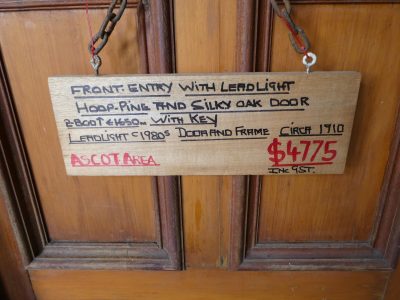 FRONT ENTRY WITH LEADLIGHT
HOOP-PINE AND SILKY OAK DOOR
WITH KEY
LEADLIGHT C1980S DOOR AND FRAME CIRCA 1910
ASCOT AREA
$4775
INC GST.